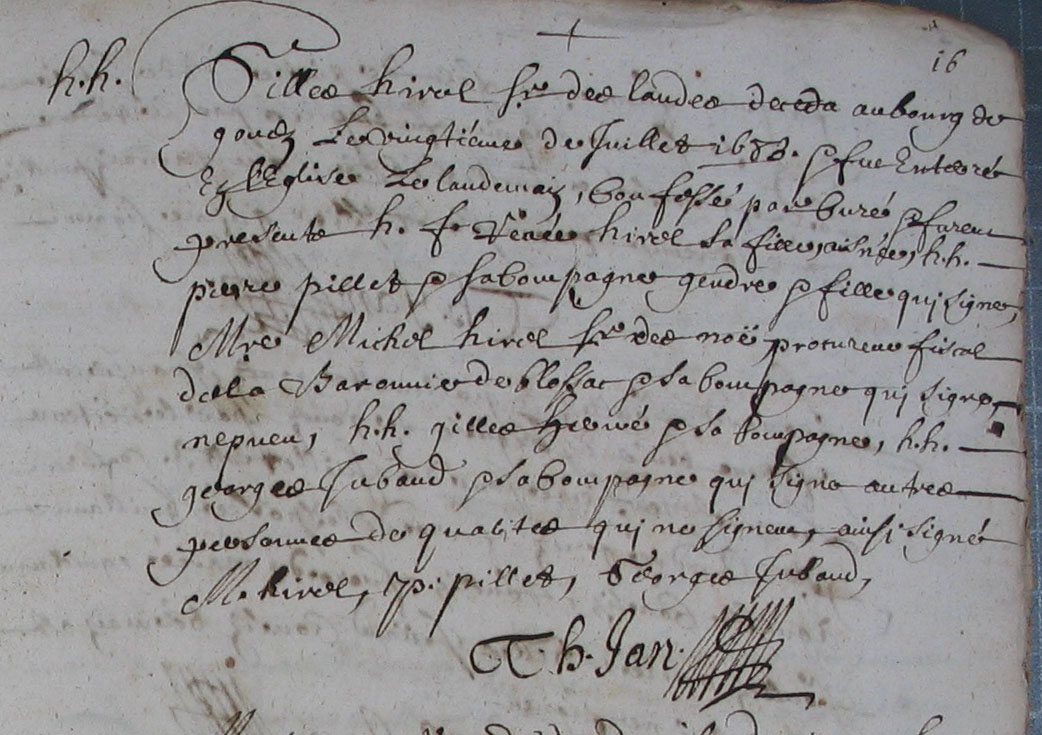 16
h.h. Gilles hirel sr des landes deceda au bourg de
gouen Le vingtième de Juillet 1683. & fut Enterré
En l'Eglise Le landemain, son fossé par curé, & furent
presents h. f. Renée hirel sa fille, aisnée, h.h.
pierre pillet & sa Compagne gendre & fille qui signe,
Mre Michel hirel sr des noë procureur fiscal
dela Baronnie de blossac & sa Compagne qui signe,
nepueu, h.h. gilles hervé & sa Compagne, h.h.
georges Jubaud & sa Compagne qui signe autres
personnes de qualités qui ne signent, ainsi signé
M. hirel, p. pillet, Georges Jubaud,
Th. Jan.